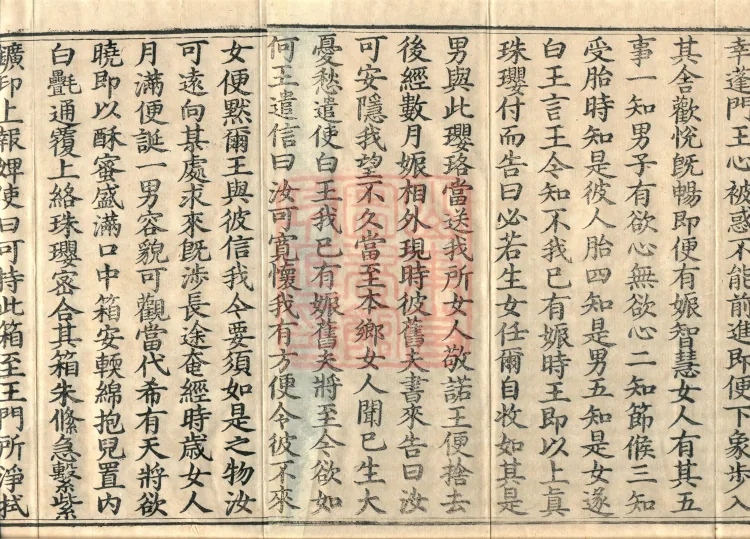 幸蓬門王心被惑不能前進即便下象步入
其舍歡悅既暢即便有娠智慧女人有其五
事一知男子有欲心無欲心二知節候三知
受胎時知是彼人胎四知是男五知是女遂
白王言王今知不我已有娠時王即以上真
珠瓔付而告曰必若生女任爾自收如其是
男與此瓔珞當送我所女人敬諾王便捨去
後經數月娠相外現時彼舊夫書來告曰汝
可安隱我望不久當至本鄉女人聞已生大
憂愁遣使白王我已有娠舊夫將至今欲如
何王遣信曰汝可寬懷我有方便令彼不來
女便默爾王與彼信我今要須如是之物汝
可遠向某處求來既涉長途奄經時歲女人
月滿便誕一男容貌可觀當代希有天將欲
曉即以酥蜜盛滿口中箱安輭綿抱兒置內
白㲲通覆上絡珠瓔密合其箱朱絛急繫紫
鑛印上報婢使曰可持此箱至王門所淨拭